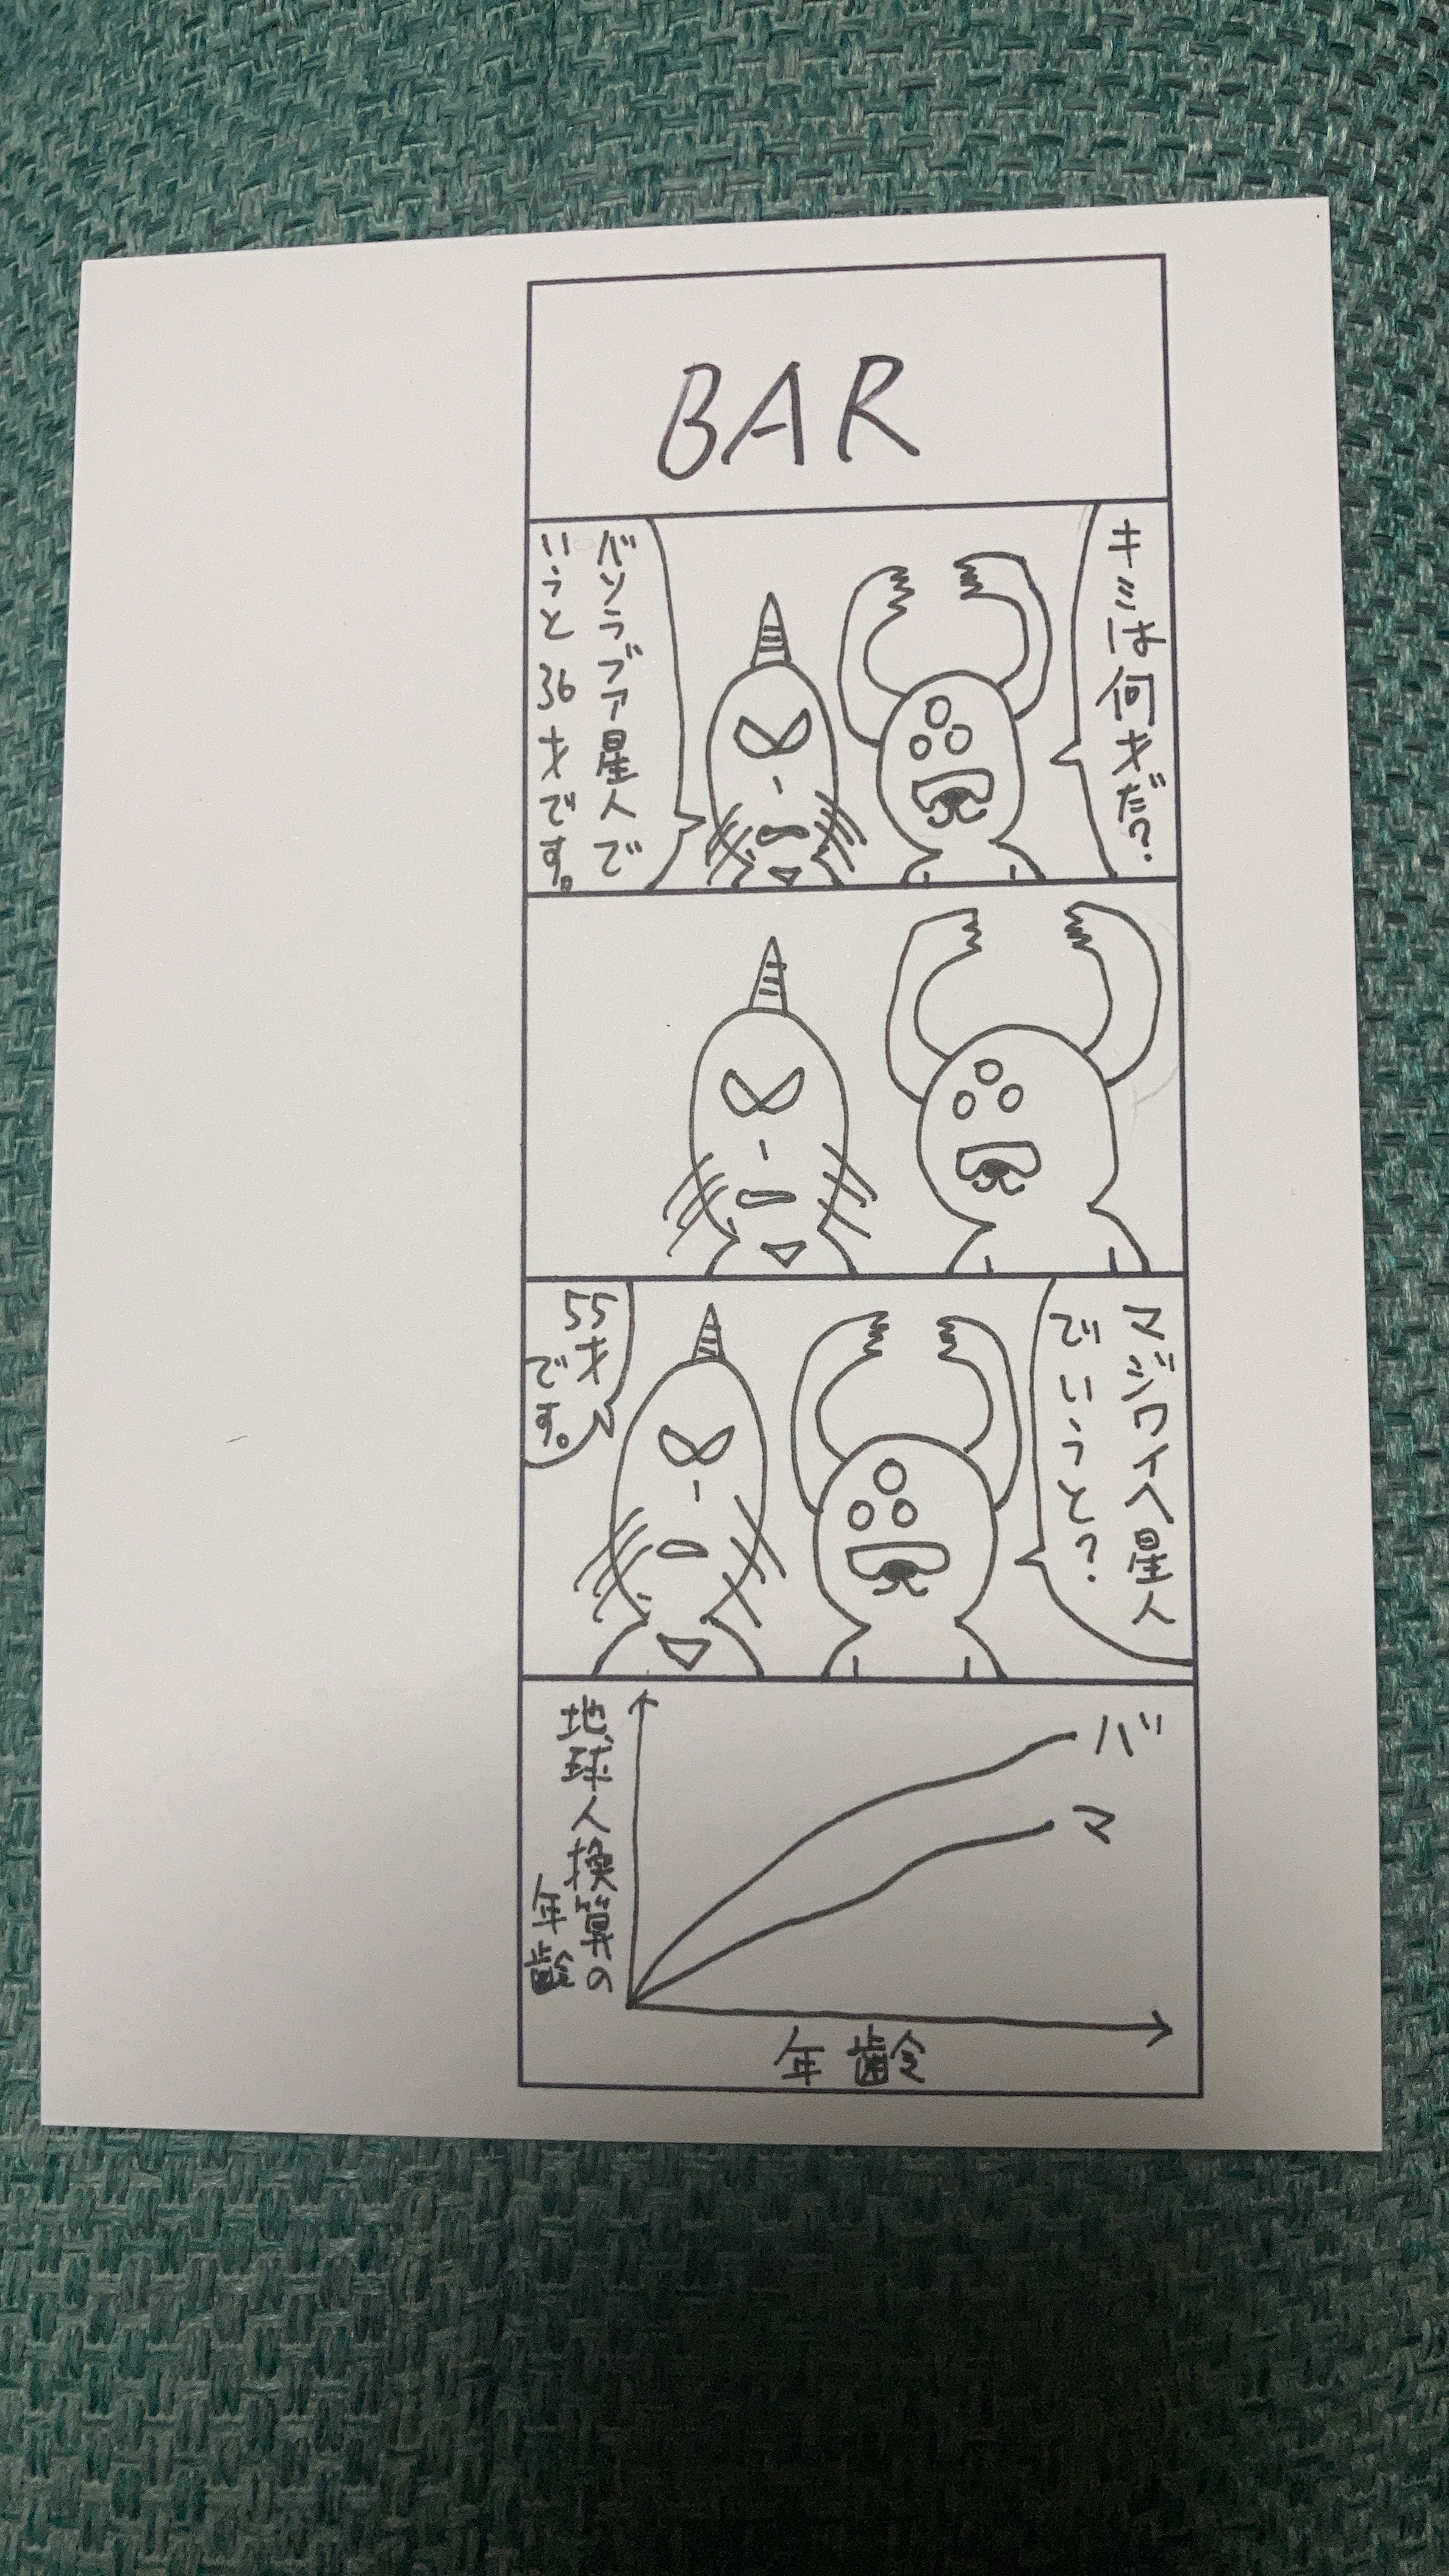 BAR
キミは何才だ?
バソラブア星人で
いうと36才です。
マジロイヘ星人
でいうと?
55才
です。
地球人換算の
年齢
バ
マ
年齢